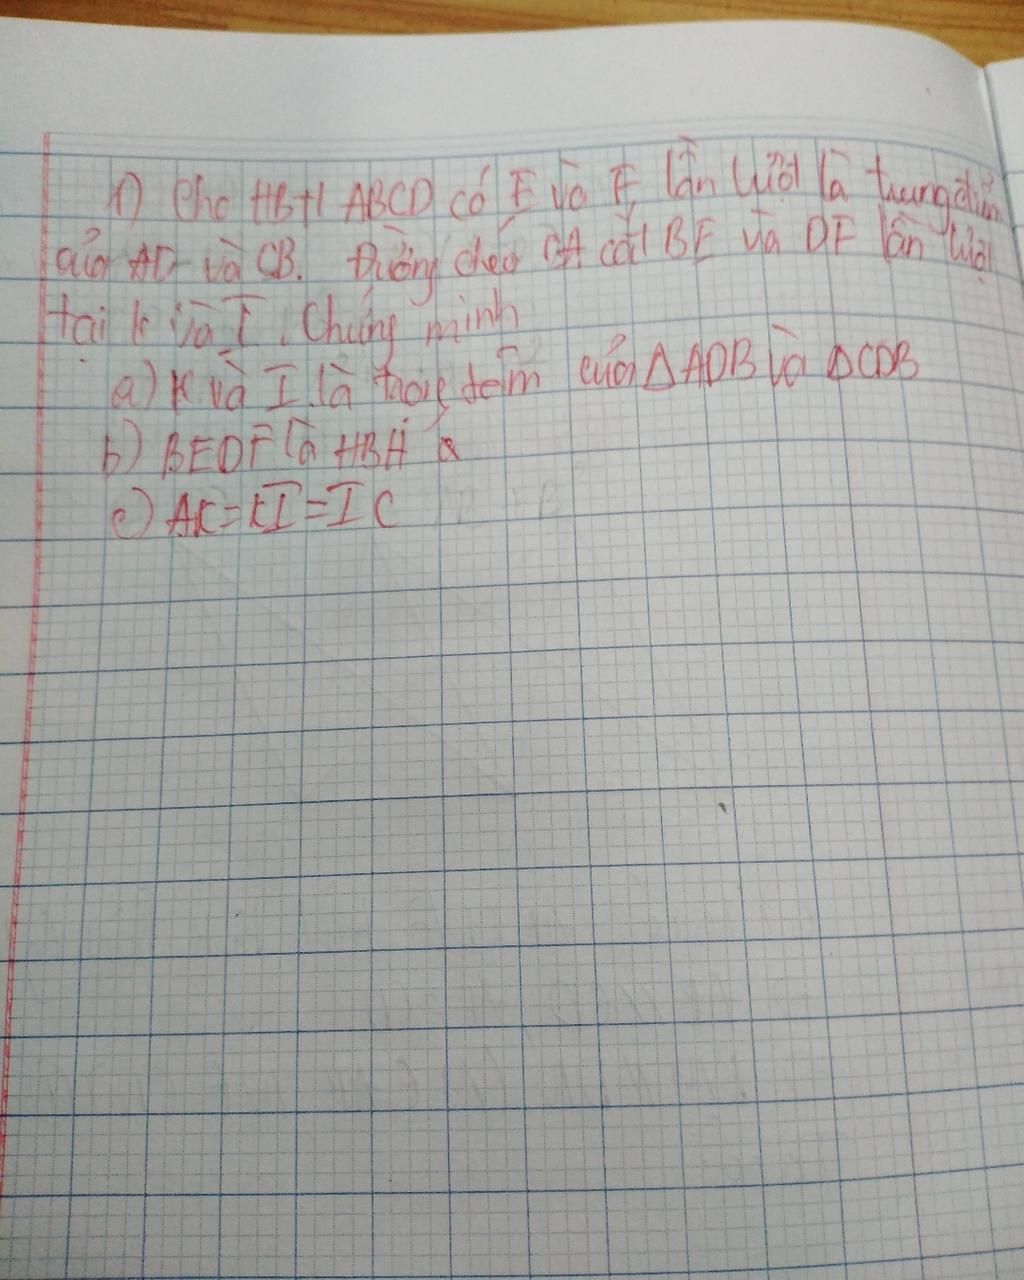 1) Cho HBH ABCD có E và F, lần lượt là trung điểm
của AD và CB. Đường chéo CA cắt BE và DF lần lượt
tại k và I. Chứng minh
a) K và I là trọng tâm của ΔADB và ΔCDB
b) BEDF là HBH
c) AK=KI=IC